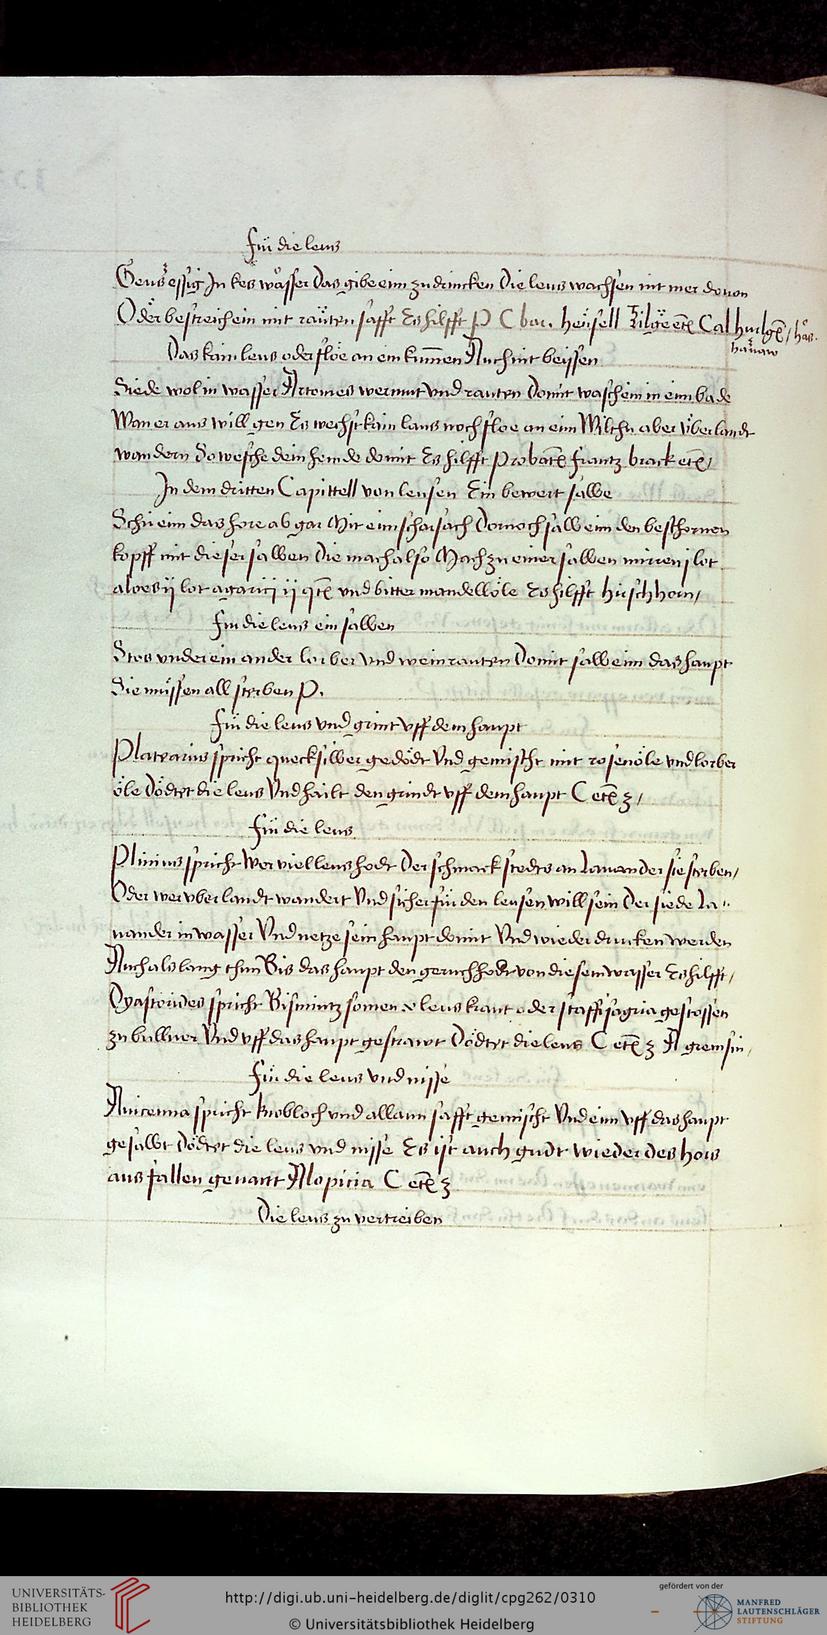 Fuͤr die leus
Geus essig Jn kes wasser Das gibe eim zu drincken Die leus wachsen nit mer douon
Oder bestreich ein mit rauten safft Es hilfft P C bar. heusell Zilgeetc Cal
hanaw
Das kain leus oder floͤe an ein kumen Auch nit beissen
Siede wol in wasser Artomes wermut vnd rauten Domit wasch ein in eim bade
Wan er aus will gen Es wechst kain laus noch floe an eim Wiltu aber vber landt
wandern So wesche dein hemde domit Es hilfft probatc frantz brack etc/
Jn dem dritten Capittell von leusen Ein bewert salbe
Schir eim das hore ab gar Mit eim scharsach Dornoch salb eim den beschornen
kopff mit dieser salben Die mach also Mach zu einer salben mirren j lot
aloes ij lot agarici ij qtc vnd bitter mandell oͤle Es hilfft hirschhorn/
Fur die leus ein salben
Stos vnder ein ander lorber vnd weinrauten Domit salb eim das haupt
Sie muͤssen all sterben P.
Fuͤr die leus vnd grint vff dem haupt
Platearius spricht quecksilber gedoͤdt Vnd gemischt mit rosenoͤle vnd lorber
oͤle Doͤdtet die leus Vnd hailt den grindt vff dem haupt C etc z/
Fuͤr die leus
Plinius spricht Wer viel leus hodt Der schmack stedts an Lauander sie sterben/
Oder wer vber landt wandert Vnd sicher fuͤr den leusen will sein Der siede La-
uander in wasser Vnd netze sein haupt domit Vnd wieder drucken werden
Auch als lang thun Bis das haupt den geruch hodt von diesem wasser Es hilfft/
Dyascorides spricht Bismintz somen leus kraut oder staffisagria gestossen
zu bulluer Vnd vff das haupt gestrawt Doͤdtet die leus C etc z A gremsin/
Fuͤr die leus vnd nisse
Auicenna spricht knobloch vnd allaun safft gemischt Vnd eim vff das haupt
gesalbt Doͤdtet die leus vnd nisse Es ist auch gudt wieder des hors
aus fallen genant Alopicia C etc z
Die leus zu vertreiben
UNIVERSITÄTS-
BIBLIOTHEK
HEIDELBERG
http://digi.ub.uni-heidelberg.de/diglit/cpg262/0310
© Universitätsbibliothek Heidelberg
gefördert von der
MANFRED
LAUTENSCHLÄGER
STIFTUNG